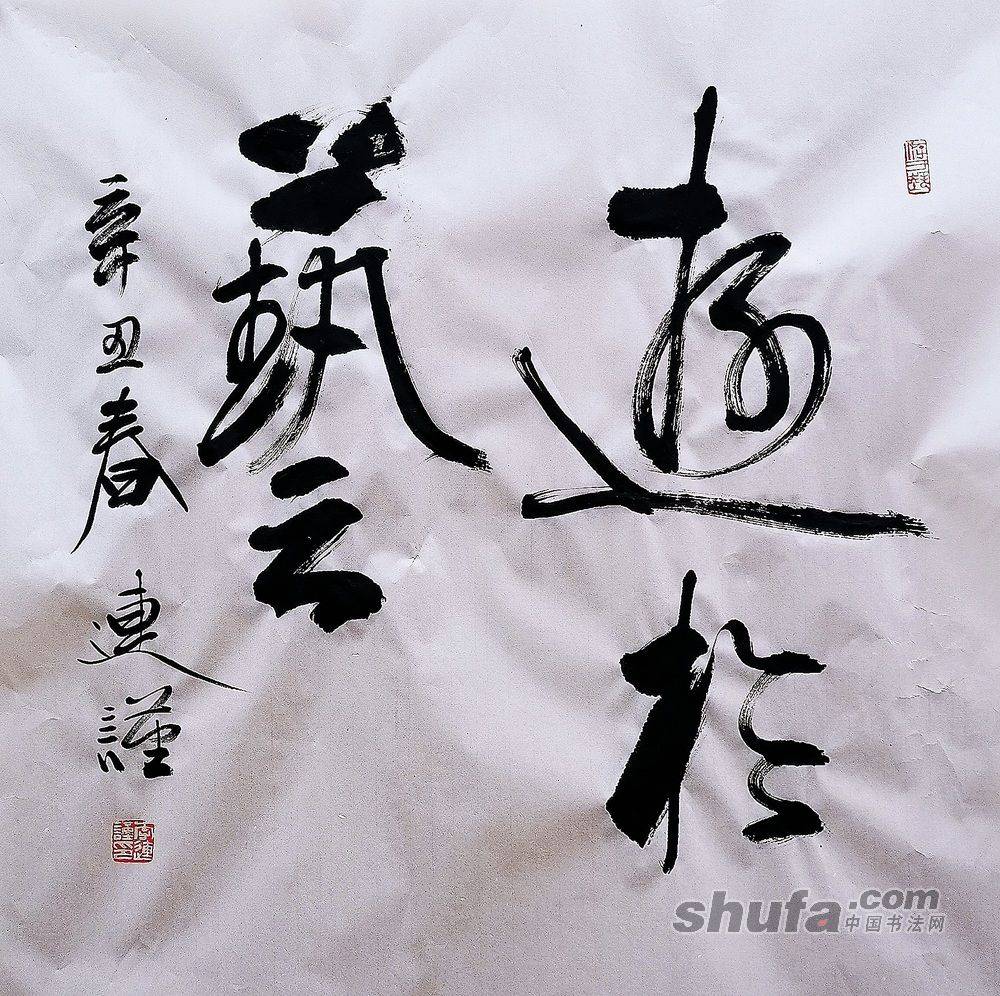 遊於
藝
辛丑春 連謹
shufa.com
中国书法网